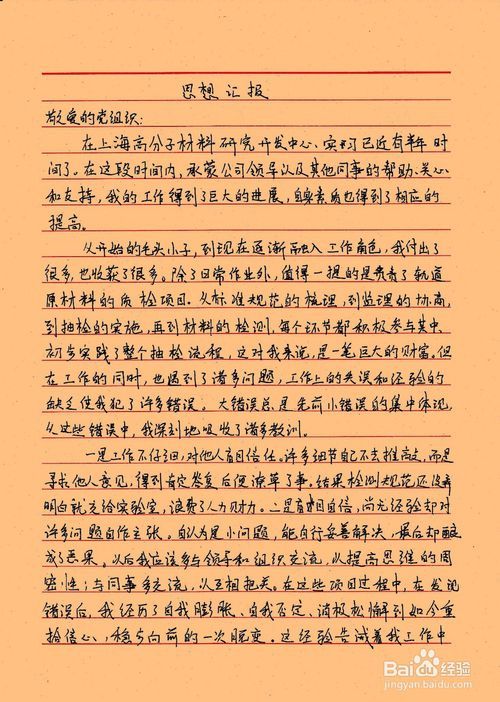 思想汇报
敬爱的党组织：
在上海高分子材料研究开发中心实习已近有半年时
间了。在这段时间内，承蒙公司领导以及其他同事的帮助、关心
和支持，我的工作得到了巨大的进展，自身素质也得到了相应的
提高。
从开始的毛头小子，到现在逐渐融入工作角色，我付出了
很多，也收获了很多。除了日常作业外，值得一提的是负责了轨道
原材料的质检项目。从标准规范的梳理，到监理的协商，
到抽检的实施，再到材料的检测，每个环节都积极参与其中，
初步实践了整个抽检流程，这对我来说，是一笔巨大的财富。但
在工作的同时，也遇到了诸多问题，工作上的失误和经验的
缺乏使我犯了许多错误。大错误总是先前小错误的集中体现，
从这些错误中，我深刻地吸收了诸多教训。
一是工作不仔细，对他人盲目信任。许多细节自己不去推敲，而是
寻找他人意见，得到肯定答复后便潦草了事。结果检测规范还没弄
明白就交给实验室，浪费了人力财力。二是盲目自信，尚无经验却对
许多问题自作主张。自认为是小问题，能自行妥善解决，最后却酿
成了恶果。以后我应该多与领导和组织交流，以提高思维的周
密性；与同事多交流，以互相把关。在这些项目过程中，在发现
错误后，我经历了自我膨胀、自我否定、消极松懈到如今重
拾信心、移步向前的一次蜕变。这经验告诫着我工作中
Baidu经验
jingyan.baidu.com